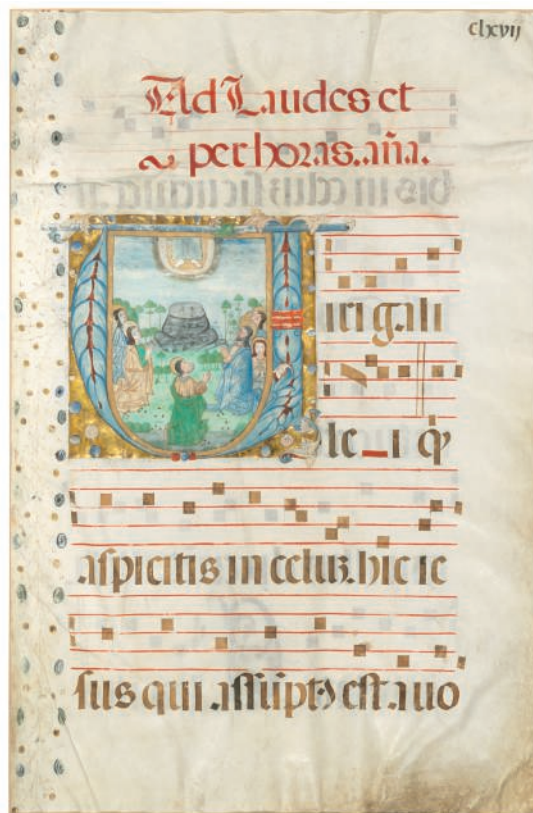 clxvij
Ad Laudes et
per horas. aña.
Viri gali
le_i q̃
aspicitis in celuʒ. hic ie
sus qui assũptꝰ est a uo